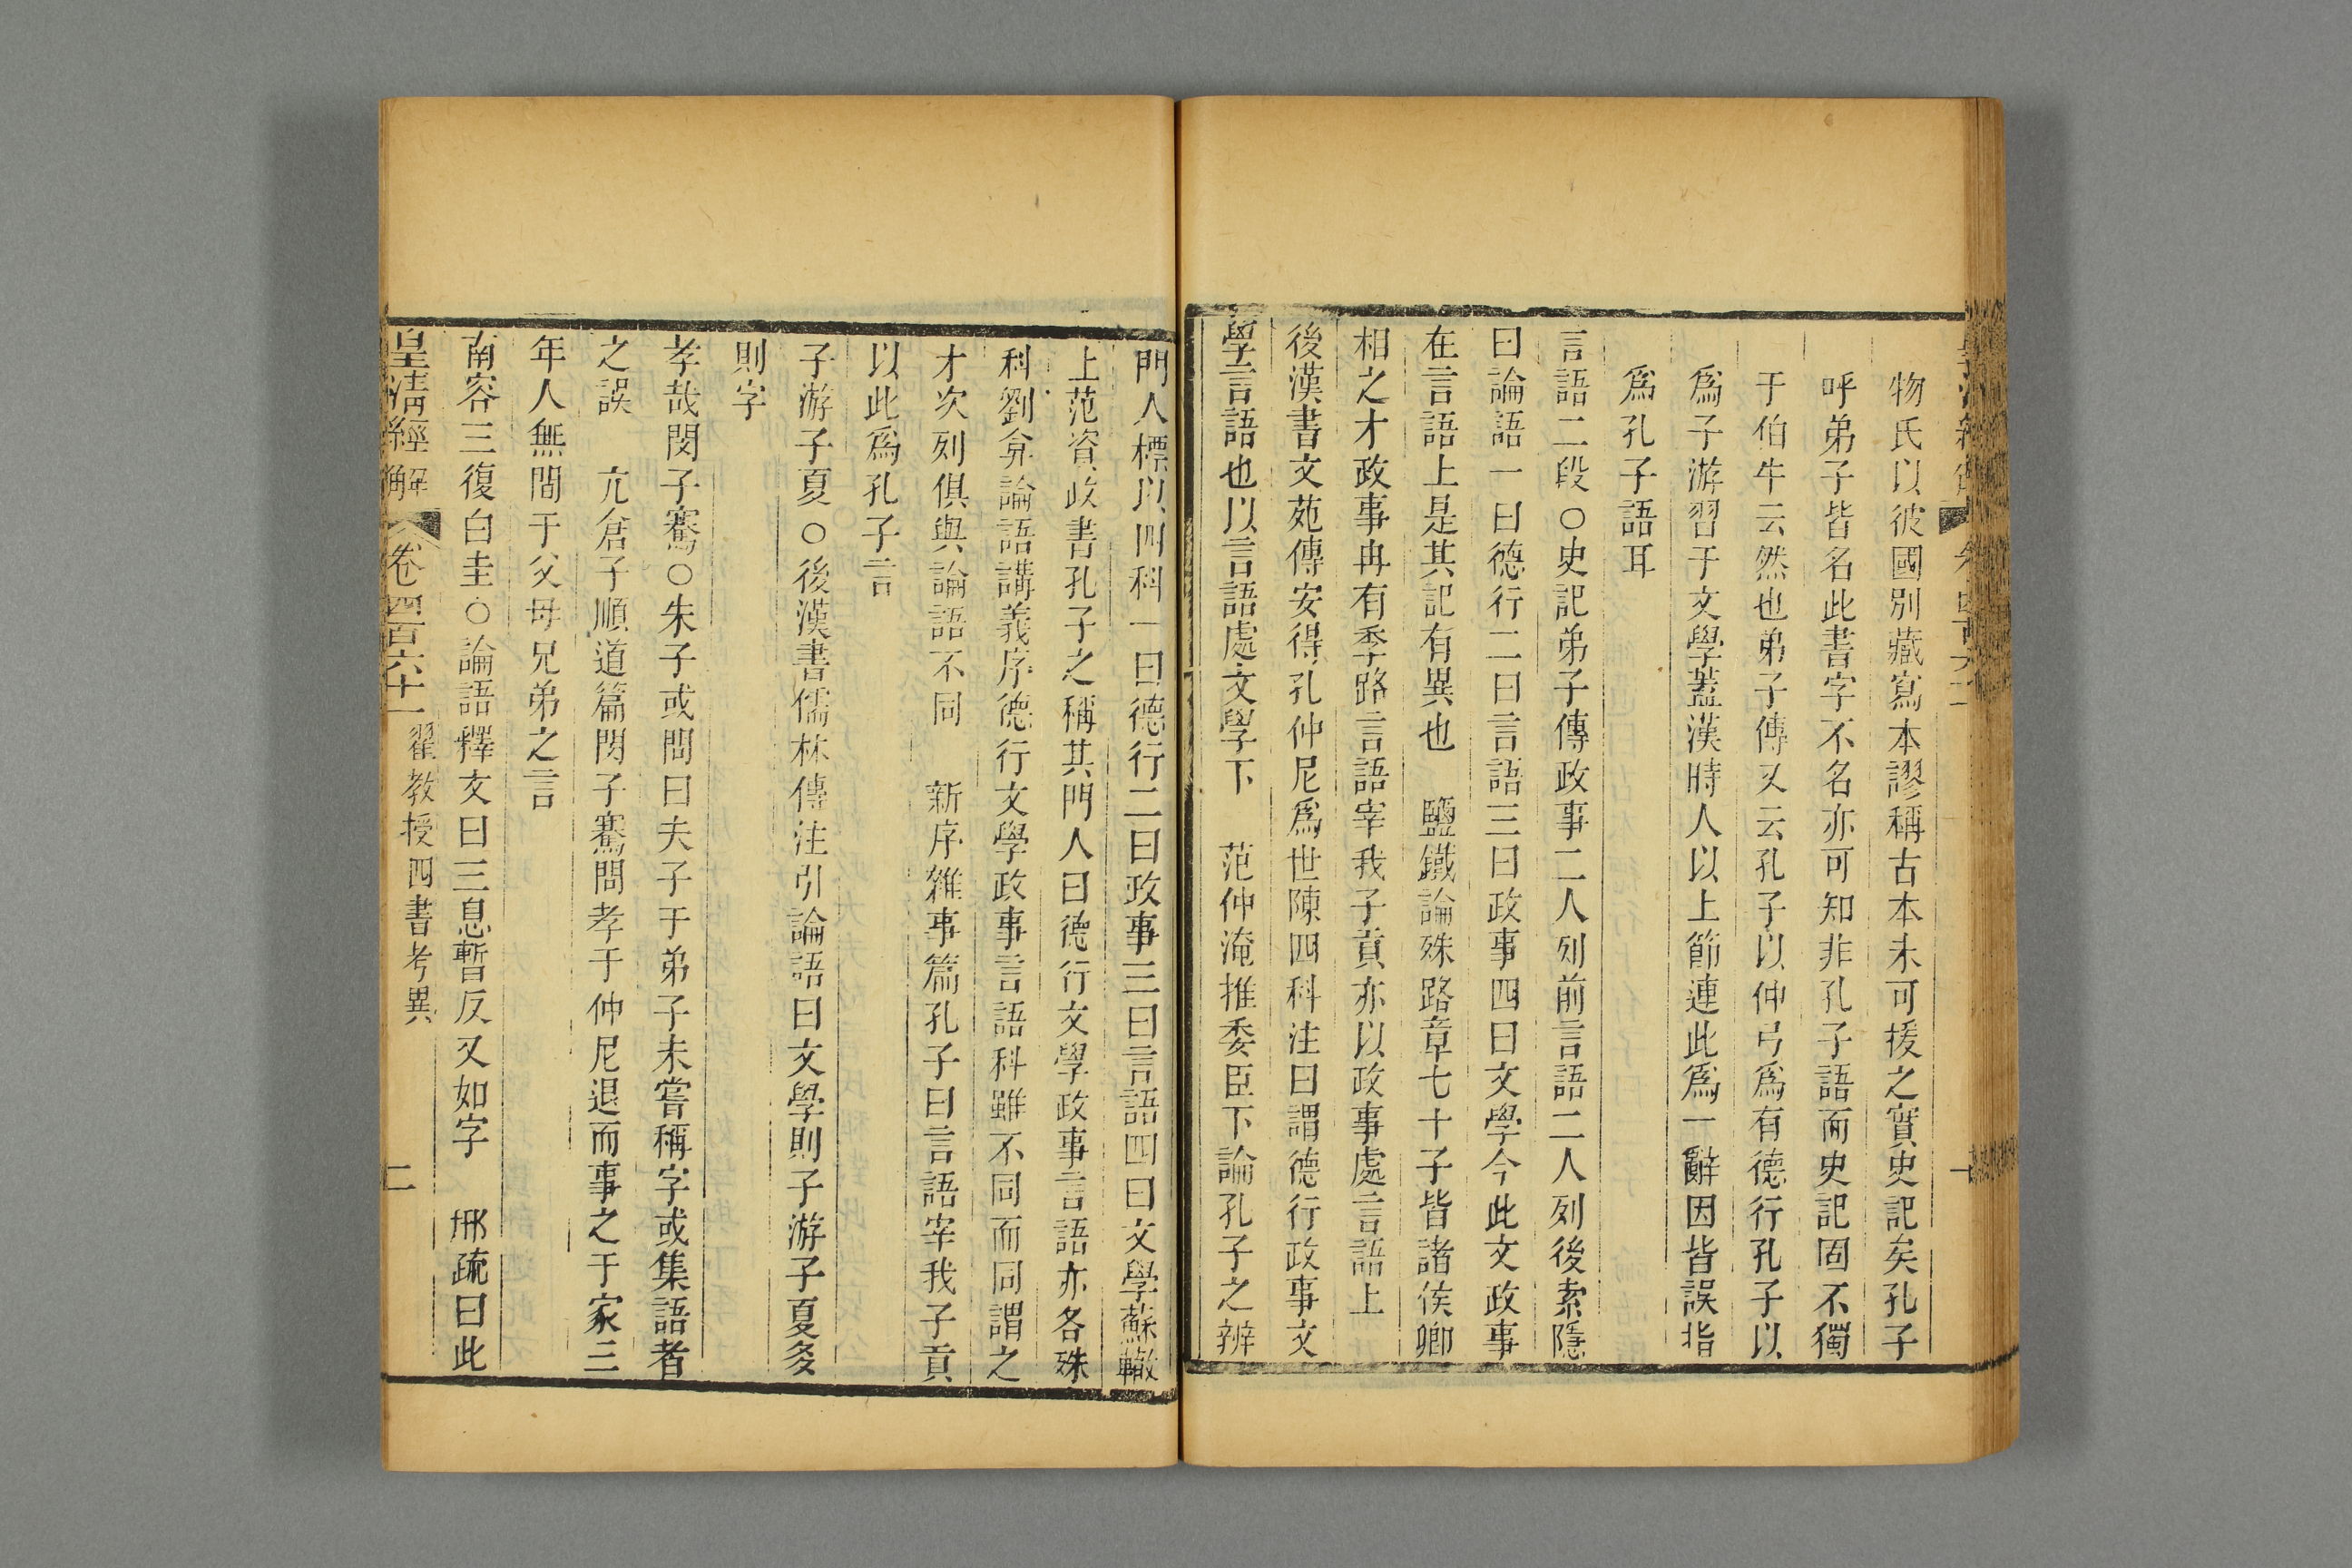 物氏以彼國別藏寫本謬稱古本未可援之實史記矣孔子
呼弟子皆名此書字不名亦可知非孔子語而史記固不獨
于伯牛云然也弟子傳又云孔子以仲弓爲有德行孔子以
爲子游習于文學蓋漢時人以上節連此爲一辭因皆誤指
爲孔子語耳
言語二段○史記弟子傳政事二人列前言語二人列後索隱
曰論語一曰德行二曰言語三曰政事四曰文學今此文政事
在言語上是其記有異也　鹽鐵論殊路章七十子皆諸侯卿
相之才政事冉有季路言語宰我子貢亦以政事處言語上
後漢書文苑傳安得孔仲尼爲世陳四科注曰謂德行政事文
學言語也以言語處文學下　范仲淹推委臣下論孔子之辨
門人標以四科一曰德行二曰政事三曰言語四曰文學蘇轍
上范資政書孔子之稱其門人曰德行文學政事言語亦各殊
科劉弇論語講義序德行文學政事言語科雖不同而同謂之
才次列俱與論語不同　新序雜事篇孔子曰言語宰我子貢
以此爲孔子言
子游子夏○後漢書儒林傳注引論語曰文學則子游子夏多
則字
孝哉閔子騫○朱子或問曰夫子于弟子未嘗稱字或集語者
之誤　亢倉子順道篇閔子騫問孝于仲尼退而事之于家三
年人無間于父母兄弟之言
南容三復白圭○論語釋文曰三息暫反又如字　邢疏曰此
皇清經解　卷四百六十一　翟教授四書考異　二